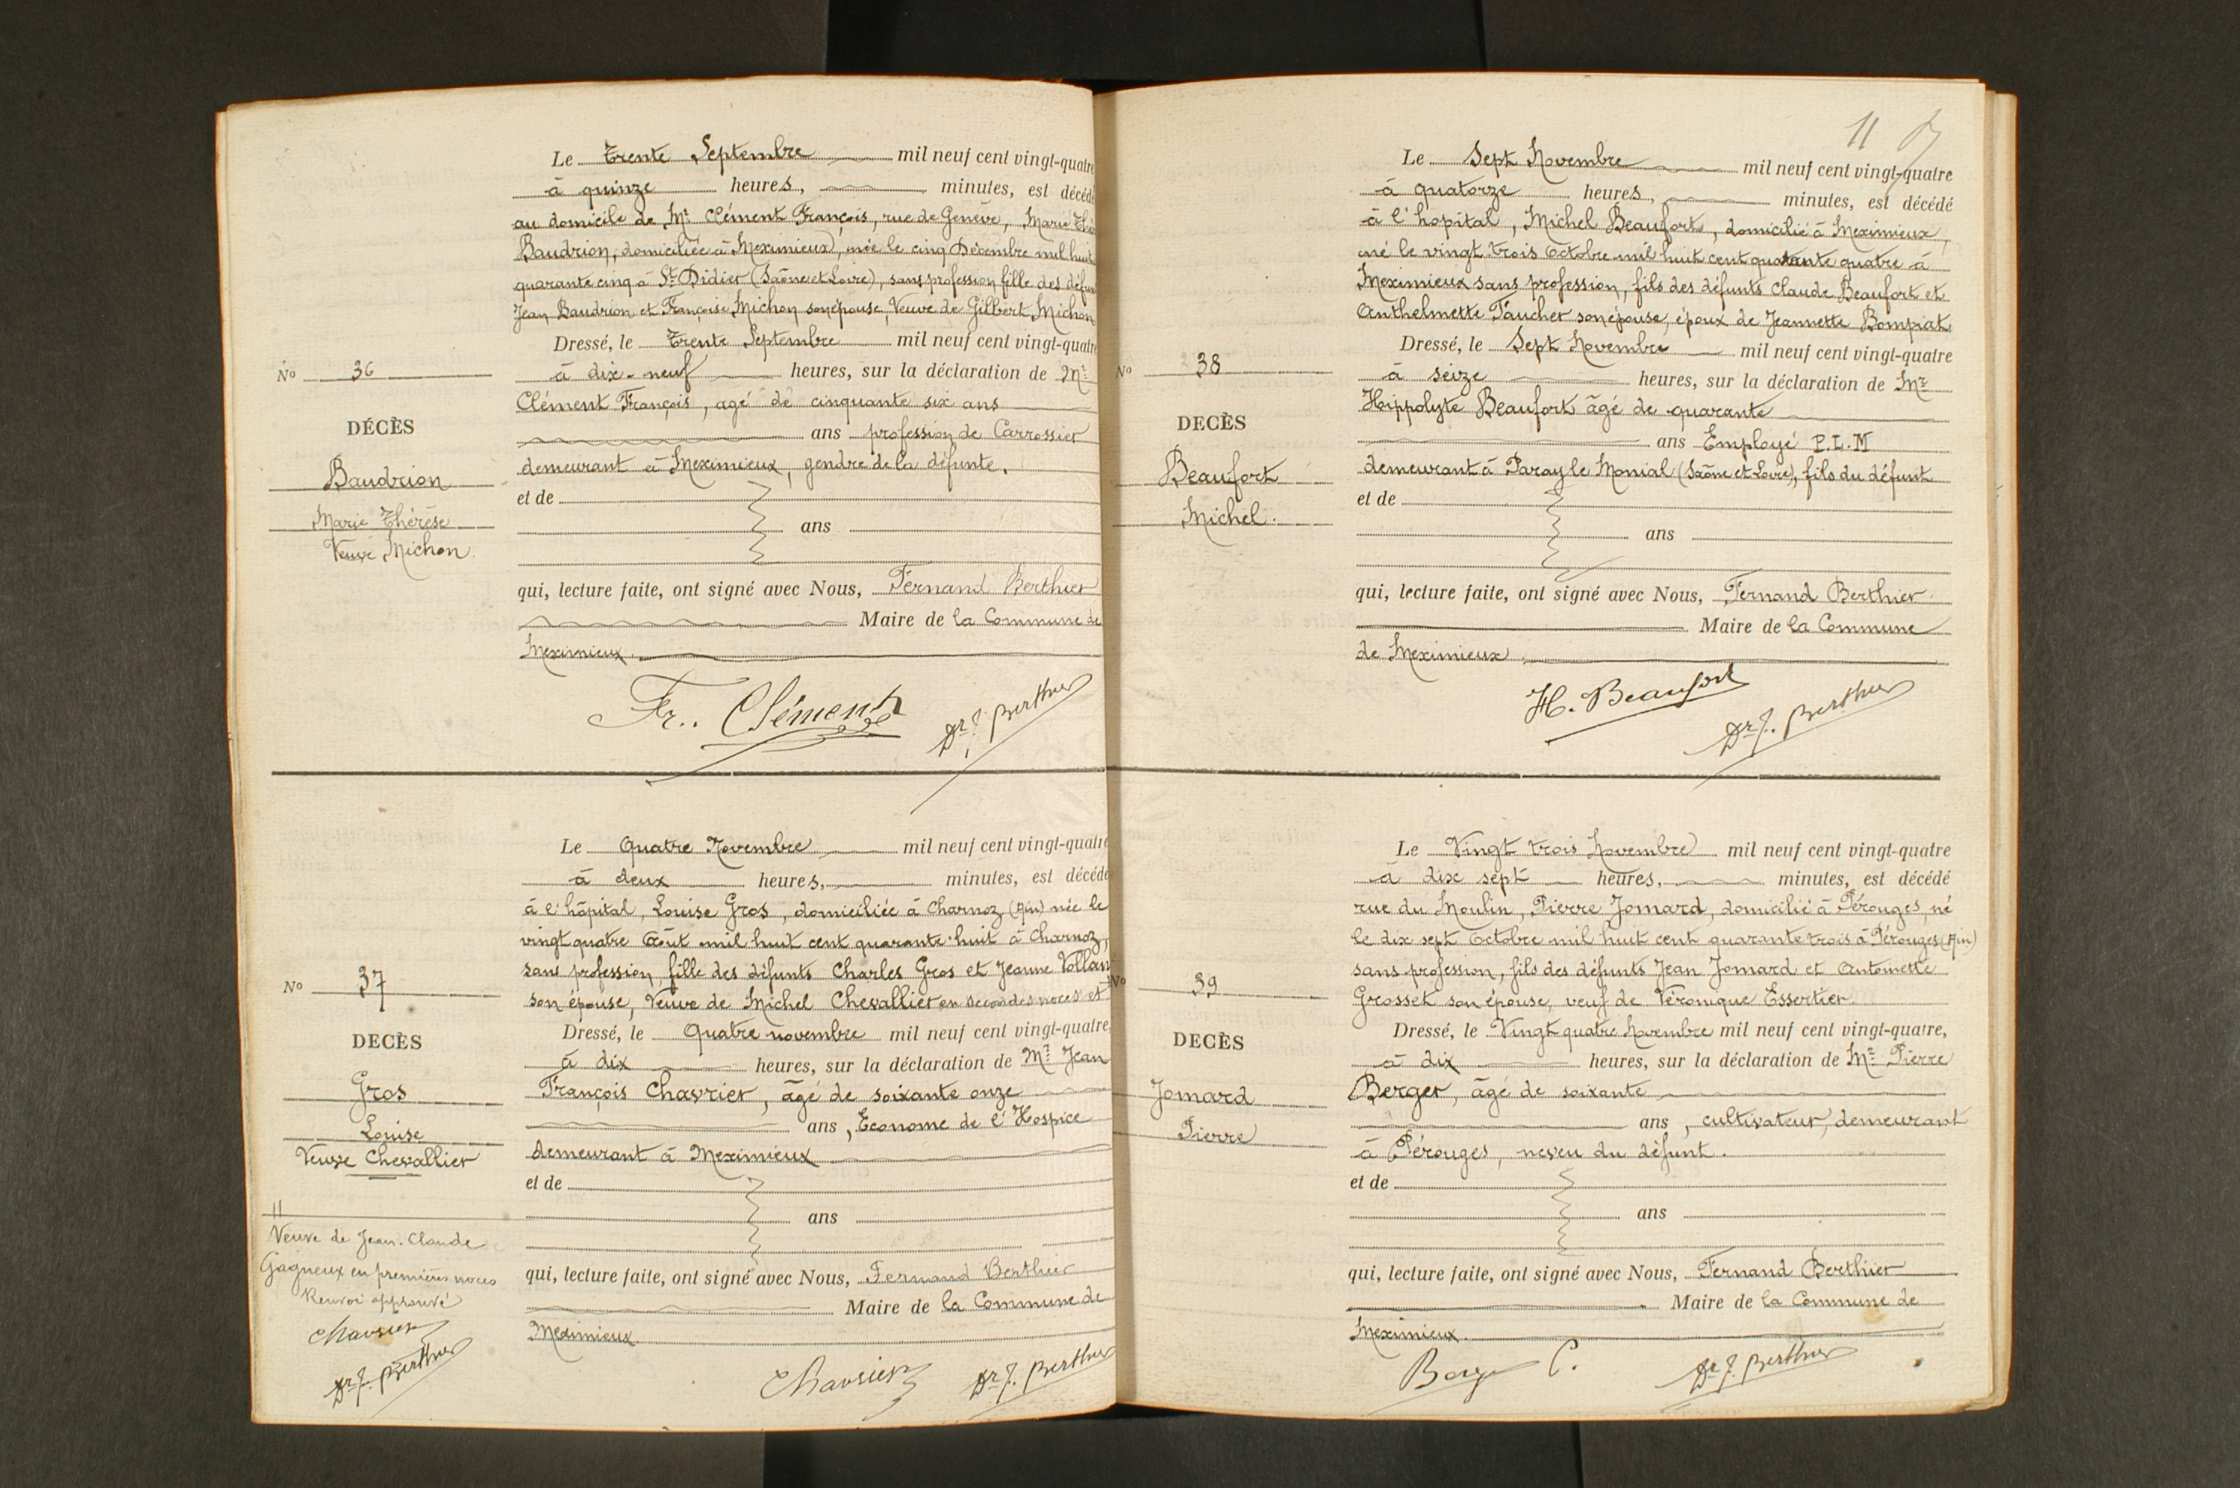 Le Trente Septembre mil neuf cent vingt-quatre
à quinze heures, minutes, est décédé
au domicile de Mr Clément François, rue de Genève, Marie Thé
Baudrion, domiciliée à Meximieux, née le cinq Décembre mil huit
quarante cinq à St Didier (Saône et Loire), sans profession fille des défun
Jean Baudrion et Françoise Michon son épouse, Veuve de Gilbert Michon
Dressé, le Trente Septembre mil neuf cent vingt-quatre
No 36
à dix-neuf heures, sur la déclaration de Mr
Clément François, agé de cinquante six ans
DÉCÈS
ans profession de Carrossier
Baudrion
demeurant à Meximieux, gendre de la défunte.
et de
Marie Thérèse
ans
Veuve Michon.
qui, lecture faite, ont signé avec Nous, Fernand Berthier
Maire de la Commune de
Meximieux.
Fr. Clément
Dr F. Berthier
Le Quatre Novembre mil neuf cent vingt-quatre
à deux heures, minutes, est décédé
à l'hôpital, Louise Gros, domiciliée à Charnoz (Ain) née le
vingt quatre Août mil huit cent quarante-huit à Charnoz,
sans profession, fille des défunts Charles Gros et Jeanne Vollan
No 37
son épouse, Veuve de Michel Chevallier en secondes noces et
Dressé, le Quatre novembre mil neuf cent vingt-quatre,
DECÈS
à dix heures, sur la déclaration de Mr Jean
Gros
François Chavrier, âgé de soixante onze
ans, Econome de l'Hospice
Louise
Veuve Chevallier
demeurant à Meximieux
et de
ans
Veuve de Jean-Claude
Gagneux en premières noces
Renvoi approuvé
Chavrier
Dr F. Berthier
qui, lecture faite, ont signé avec Nous, Fernand Berthier
Maire de la Commune de
Meximieux
Chavrier
Dr F. Berthier
11
Le Sept Novembre mil neuf cent vingt-quatre
à quatorze heures, minutes, est décédé
à l'hopital, Michel Beaufort, domicilié à Meximieux,
né le vingt-trois Octobre mil huit cent quarante quatre à
Meximieux sans profession, fils des défunts Claude Beaufort et
Anthelmette Pâucher son épouse, époux de Jeannette Bompiat
Dressé, le Sept Novembre mil neuf cent vingt-quatre
No 38
à seize heures, sur la déclaration de Mr
Hippolyte Beaufort âgé de quarante
DECÈS
ans Employé P.L.M
Beaufort
demeurant à Paray le Monial (Saône et Loire), fils du défunt
et de
Michel.
ans
qui, lecture faite, ont signé avec Nous, Fernand Berthier
Maire de la Commune
de Meximieux
H. Beaufort
Dr F. Berthier
Le Vingt trois Novembre mil neuf cent vingt-quatre
à dix sept heures, minutes, est décédé
rue du Moulin, Pierre Jomard, domicilié à Pérouges, né
le dix sept Octobre mil huit cent quarante trois à Pérouges (Ain)
sans profession, fils des défunts Jean Jomard et Antoinette
No 39
Grosset son épouse, veuf de Véronique Essertier.
Dressé, le Vingt quatre Novembre mil neuf cent vingt-quatre,
DECÈS
à dix heures, sur la déclaration de Mr Pierre
Jomard
Berger, âgé de soixante
ans, cultivateur, demeurant
Pierre
à Pérouges, neveu du défunt.
et de
ans
qui, lecture faite, ont signé avec Nous, Fernand Berthier
Maire de la Commune de
Meximieux
Berger P.
Dr F. Berthier